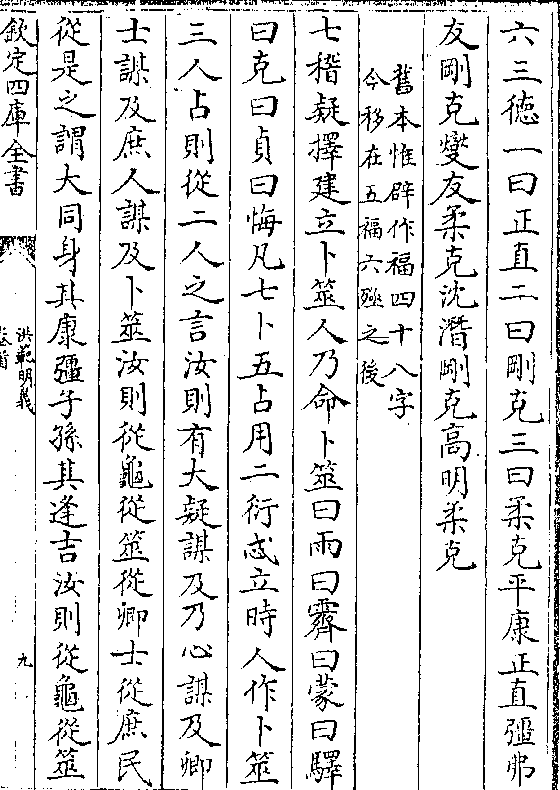 六三徳一曰正直二曰剛克三曰柔克平康正直彊弗
友剛克爕友柔克沈潛剛克高明柔克
舊本惟辟作福四十八字
今移在五福六殛之後
七稽疑擇建立卜筮人乃命卜筮曰雨曰霽曰蒙曰驛
曰克曰貞曰悔凡七卜五占用二衍忒立時人作卜筮
三人占則從二人之言汝則有大疑謀及乃心謀及卿
士謀及庶人謀及卜筮汝則從龜從筮從卿士從庶民
從是之謂大同身其康彊子孫其逢吉汝則從龜從筮
欽定四庫全書
洪範明義
卷首
九